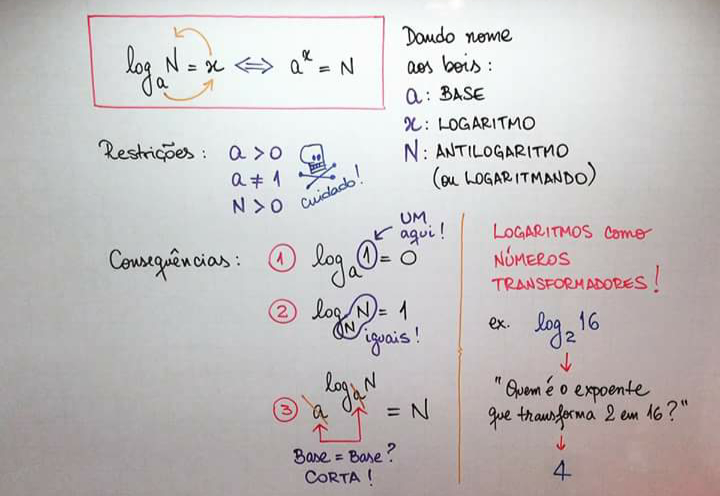 logₐ N = x ⇔ aˣ = N
Dando nome
aos bois:
a: BASE
x: LOGARITMO
N: ANTILOGARITMO
(ou LOGARITMANDO)
Restrições: a > 0
a ≠ 1
N > 0
cuidado!
Consequências: ① logₐ 1 = 0
UM
aqui!
② log_N N = 1
iguais!
③ a^(logₐ N) = N
Base = Base?
CORTA!
LOGARITMOS como
NÚMEROS
TRANSFORMADORES!
ex. log₂ 16
"Quem é o expoente
que transforma 2 em 16?"
4